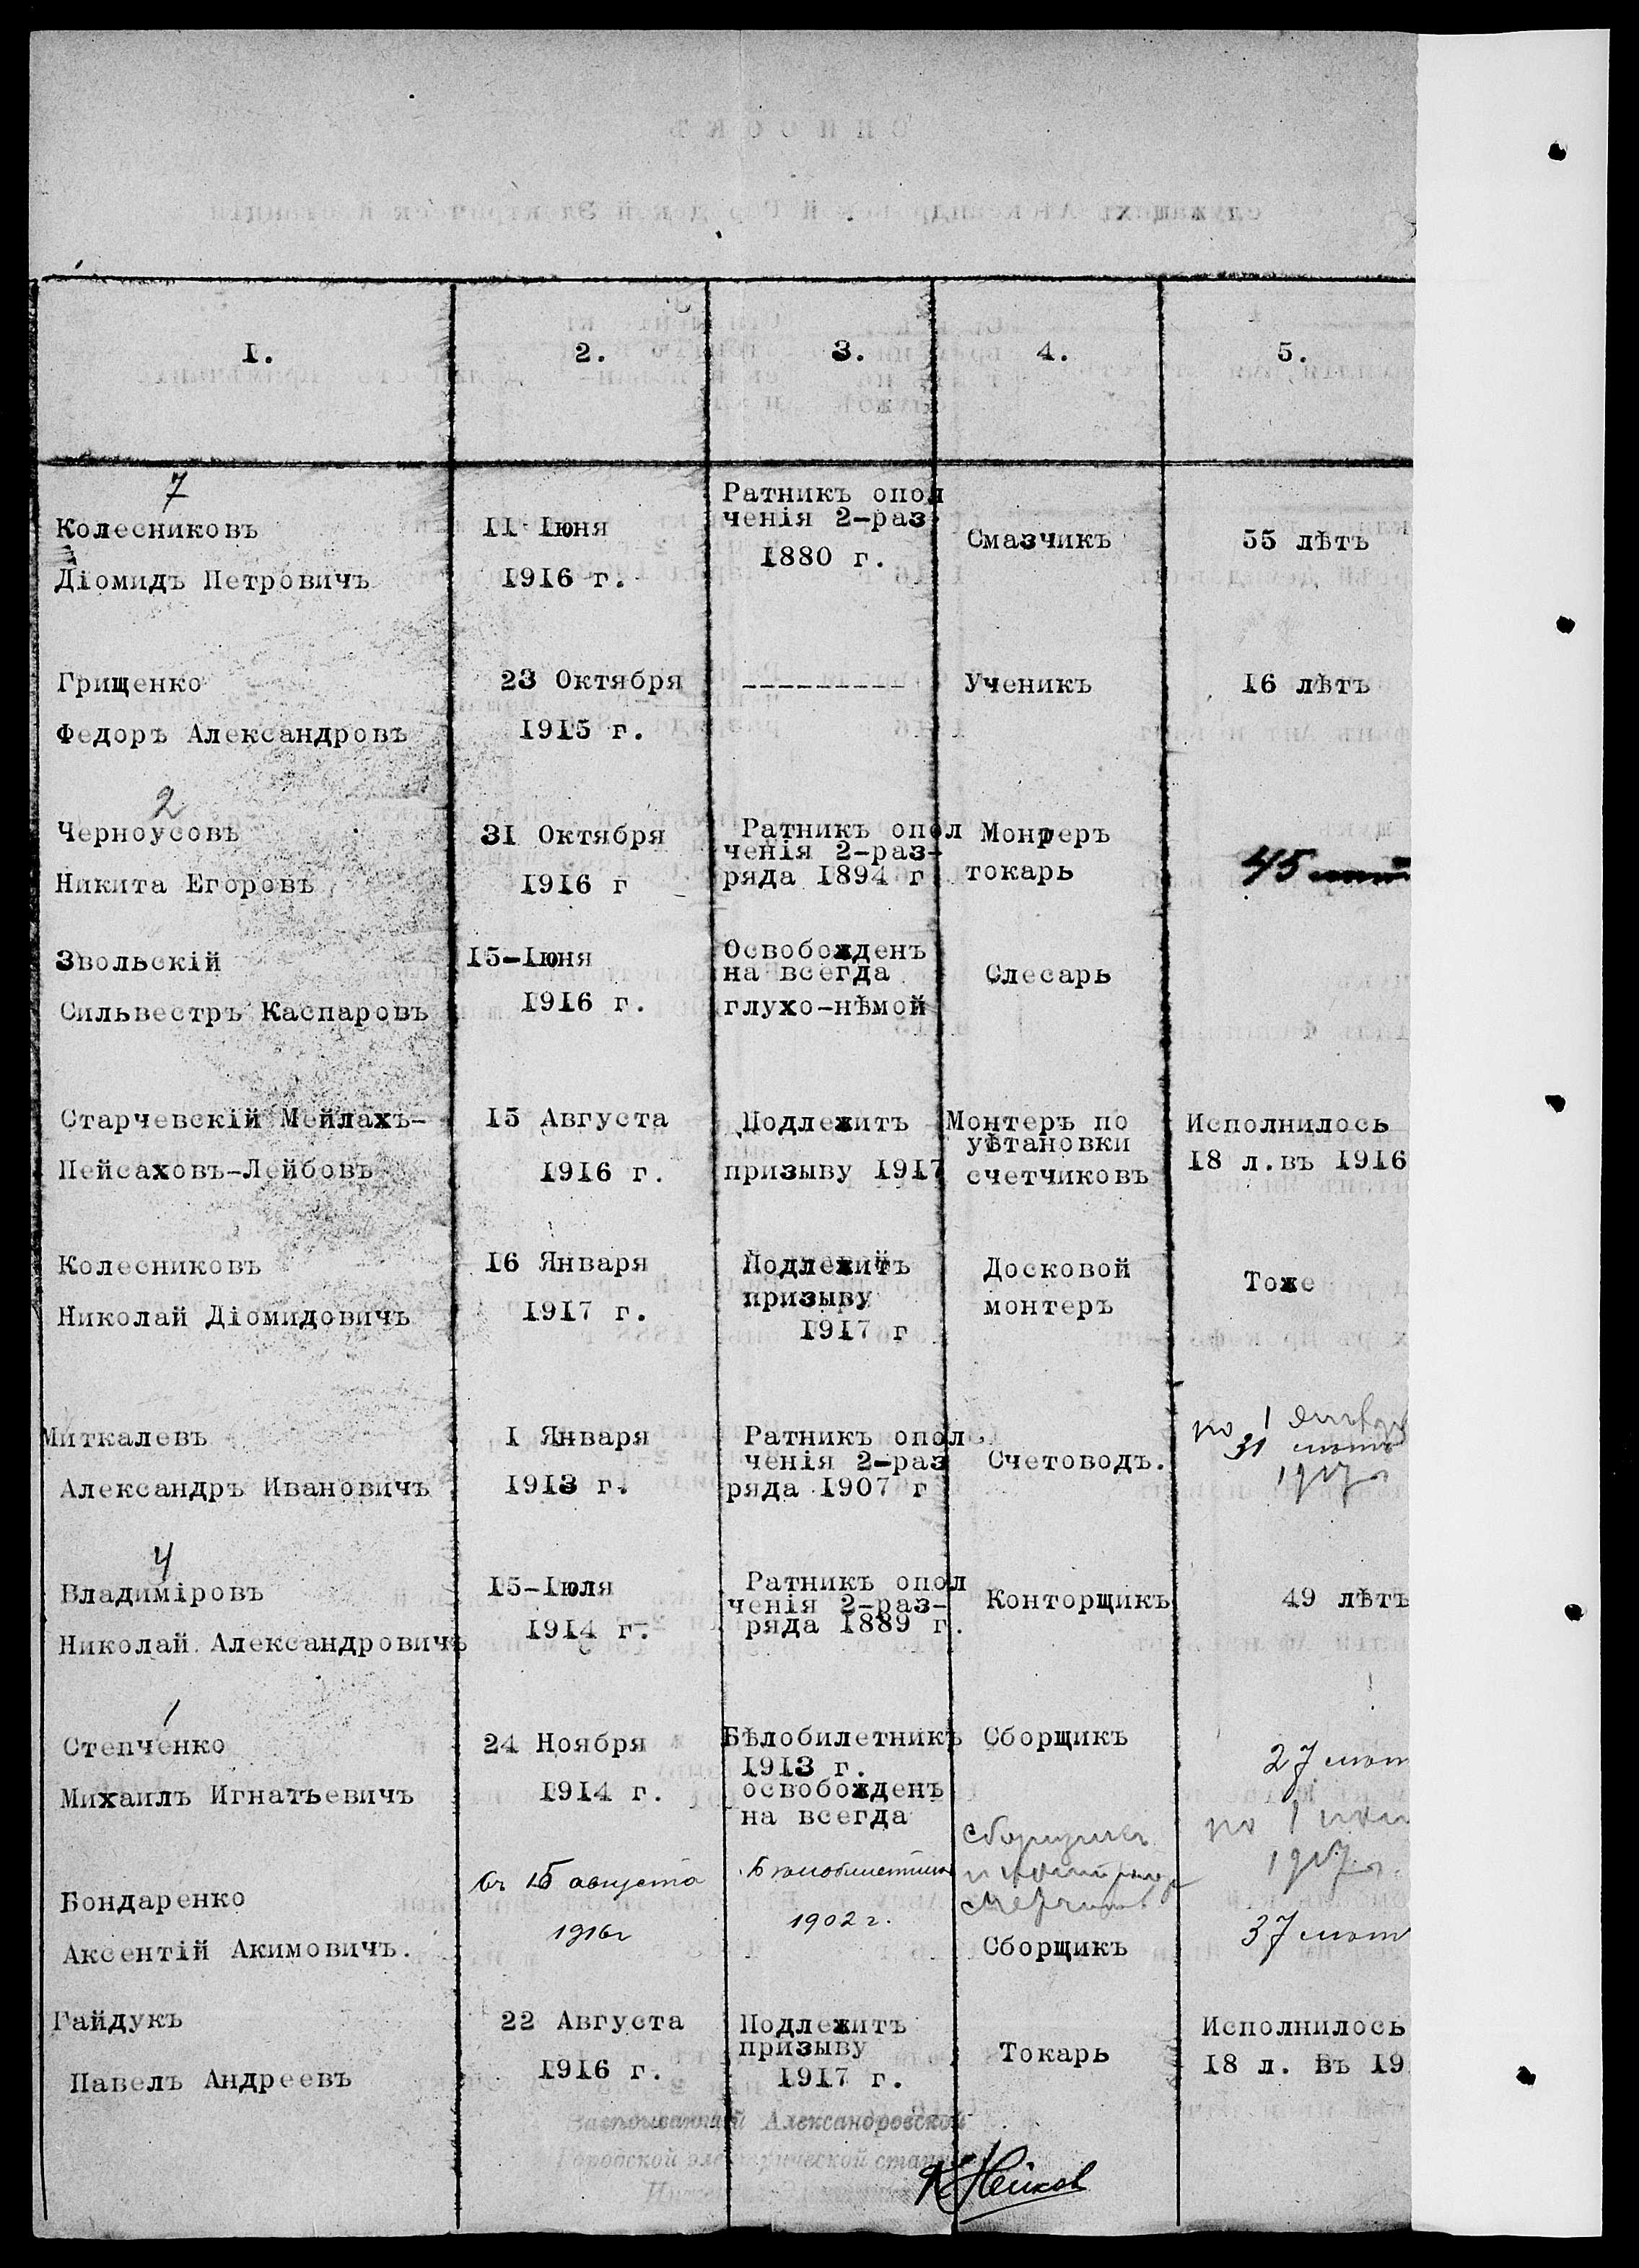 1. 2. 3. 4. 5.
7
Колесниковъ
Діомидъ Петровичъ
11 Іюня
1916 г.
Ратникъ опол
ченія 2-раз
1880 г.
Смазчикъ
55 лѣтъ
Грищенко
Федоръ Александровъ
23 Октября
1915 г.
---------
Ученикъ
16 лѣтъ
2
Черноусовъ
Никита Егоровъ
31 Октября
1916 г
Ратникъ опол
ченія 2-раз-
ряда 1894 г
Монтеръ
токарь
45
Звольскій
Сильвестръ Каспаровъ
15-Іюня
1916 г.
Освобожденъ
на всегда
глухо-нѣмой
Слесарь
Старчевскій Мейлахъ-
Пейсаховъ-Лейбовъ
15 Августа
1916 г.
Подлежитъ
призыву 1917
Монтеръ по
установки
счетчиковъ
Исполнилось
18 л.въ 1916
Колесниковъ
Николай Діомидовичъ
16 Января
1917 г.
Подлежитъ
призыву
1917 г
Досковой
монтеръ
Тоже
Миткалевъ
Александръ Ивановичъ
1 Января
1913 г.
Ратникъ опол
ченія 2-раз
ряда 1907 г
Счетоводъ.
по 1
31
1917 г
4
Владиміровъ
Николай Александровичъ
15-Іюля
1914 г.
Ратникъ опол
ченія 2-раз-
ряда 1889 г.
Конторщикъ
49 лѣтъ
1
Степченко
Михаилъ Игнатьевичъ
24 Ноября
1914 г.
Бѣлобилетникъ
1913 г.
освобожденъ
на всегда
Сборщикъ
27 лѣт
по 1
1917 г.
Бондаренко
Аксентій Акимовичъ.
съ 15 августа
1916 г
Бѣлобилетник
1902 г.
Сборщикъ
Сборщикъ
37 лѣт
Гайдукъ
Павелъ Андреевъ
22 Августа
1916 г.
Подлежитъ
призыву
1917 г.
Токарь
Исполнилось
18 л. въ 19
Завѣдывающій Александровской
Городской электрической станціи